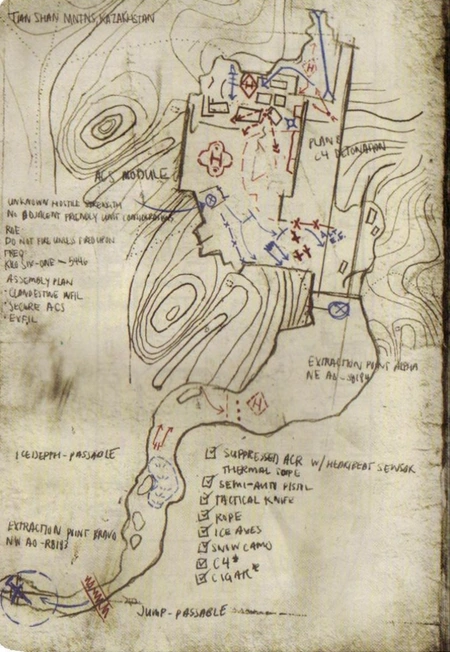 TIAN SHAN MNTNS, KAZAKHSTAN
H
PLAN B
C4 DETONATION
ACS MODULE
UNKNOWN HOSTILE STRENGTH
NO ADJACENT FRIENDLY UNIT
ROE:
DO NOT FIRE UNLESS FIRED UPON
FREQ
KILO SIX-ONE —
ASSEMBLY PLAN
· CLANDESTINE INFIL
· SECURE ACS
· EXFIL
H
EXTRACTION POINT ALPHA
NE AO -
H
ICE DEPTH - PASSABLE
SUPPRESSED ACR W/ HEARTBEAT SENSOR
THERMAL SCOPE
SEMI-AUTO PISTOL
TACTICAL KNIFE
ROPE
ICE AXES
SNOW CAMO
C4*
CIGAR*
EXTRACTION POINT BRAVO
NW AO -
JUMP - PASSABLE